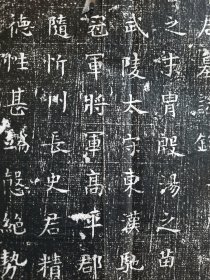 君墓誌銘
之才胄殷湯之苗
武陵太守東漢馳
冠軍將軍高平郡
隨忻州長史君精
德性甚端愨絕勢